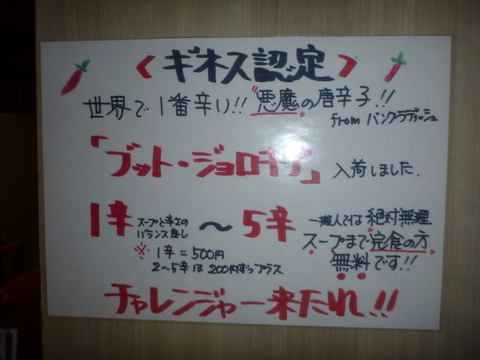 〈ギネス認定〉
世界で1番辛い!! "悪魔の唐辛子!!
from バングラディッシュ
「ブット・ジョロキア」入荷しました.
1辛 スープと辛さのバランス良し ～ 5辛 一般人では絶対無理
※ 1辛=500円
2～5辛は200円ずつプラス
スープまで完食の方
無料です!!
チャレンジャー来たれ!!